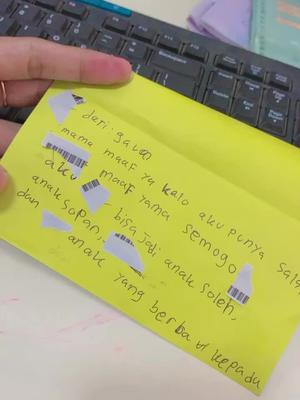 dari gavin
mama maaf ya kalo aku punya sala
maaf yama semogo
aku bisa jadi anak soleh,
anak sopan,
dan anak yang berba kepada